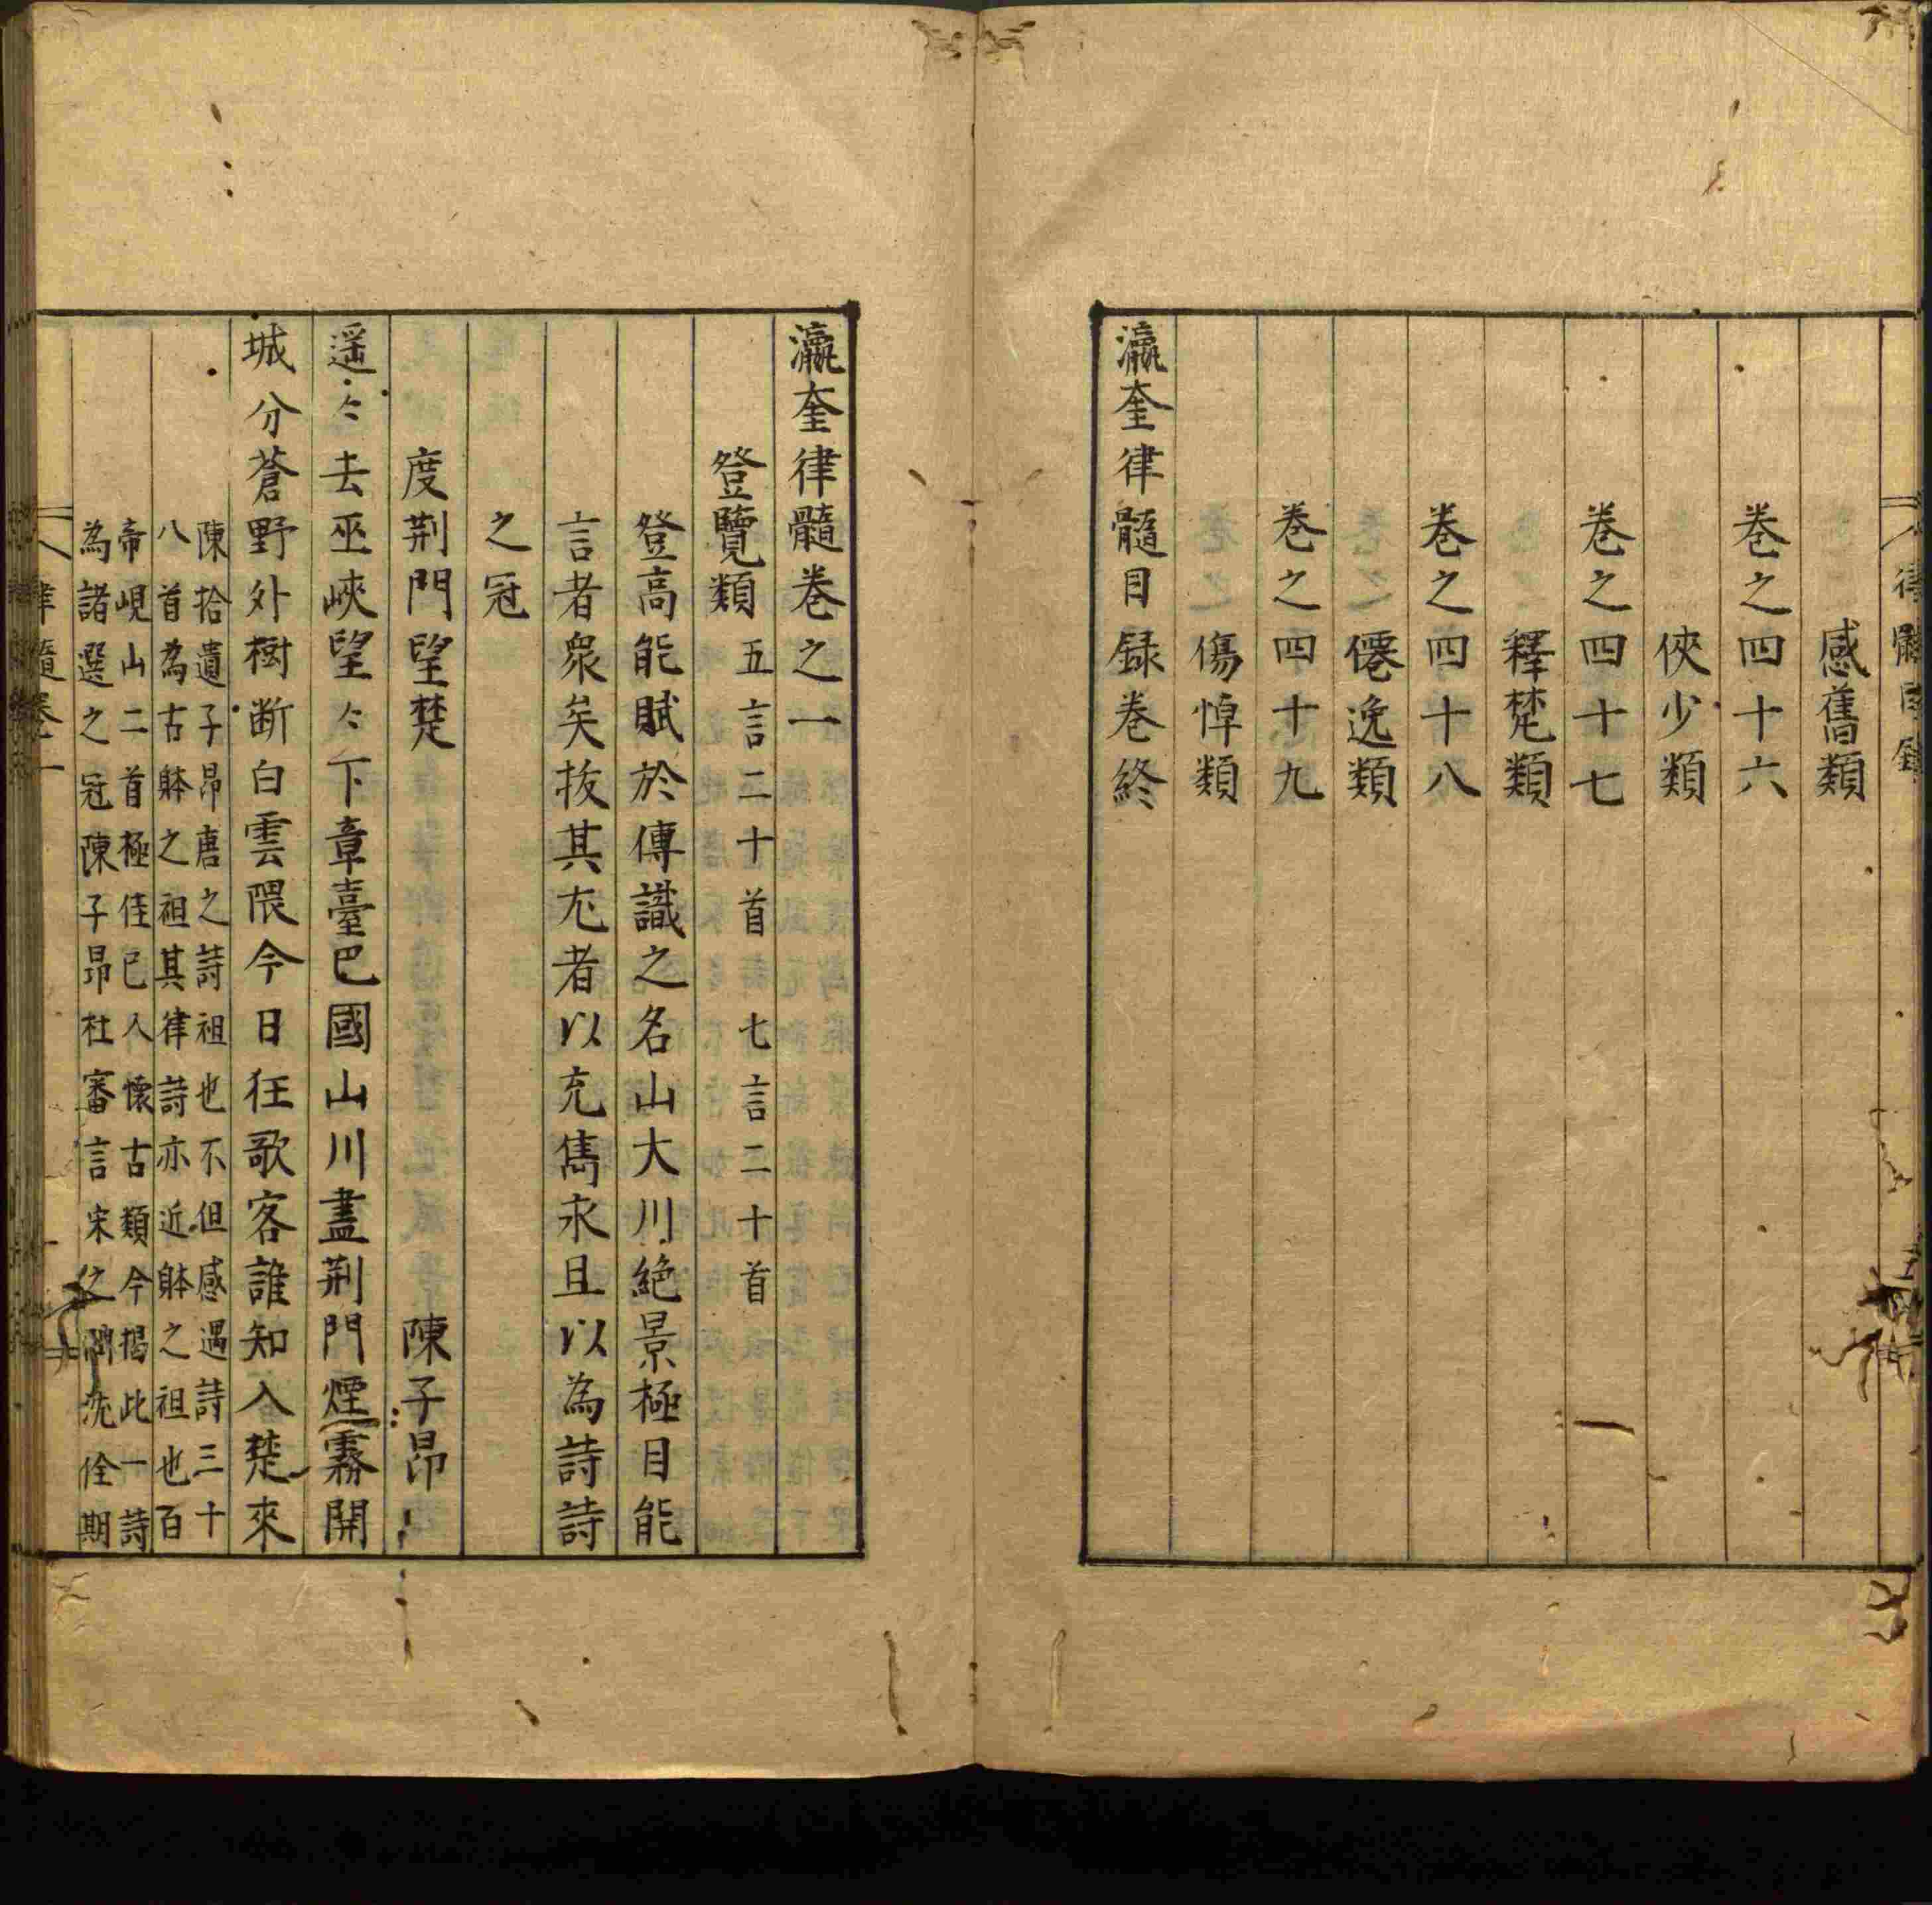 感舊類
卷之四十六
俠少類
卷之四十七
釋梵類
卷之四十八
僊逸類
卷之四十九
傷悼類
瀛奎律髓目録卷終
瀛奎律髓卷之一
登覽類 五言二十首 七言二十首
登高能賦於傳識之名山大川絶景極目能
言者衆矣拔其尤者以充雋永且以為詩詩
之冠
度荆門望楚 陳子昂
遥〻去巫峽望〻下章臺巴國山川盡荆門煙霧開
城分蒼野外樹断白雲隈今日狂歌客誰知入楚來
陳拾遺子昂唐之詩祖也不但感遇詩三十
八首為古躰之祖其律詩亦近躰之祖也百
帝峴山二首極佳已入懷古類今揭此一詩
為諸選之冠陳子昂杜審言宋之問沈佺期